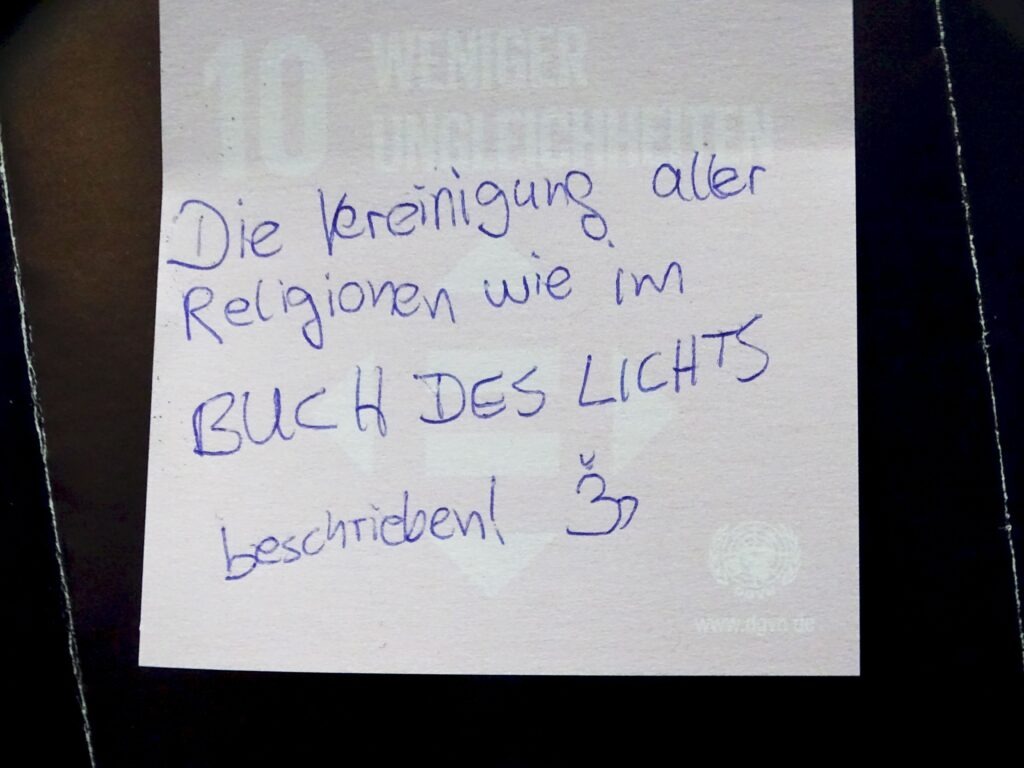 10 WENIGER
UNGLEICHHEITEN
Die Vereinigung aller
Religionen wie im
BUCH DES LICHTS
beschrieben! ॐ
DGVN
www.dgvn.de